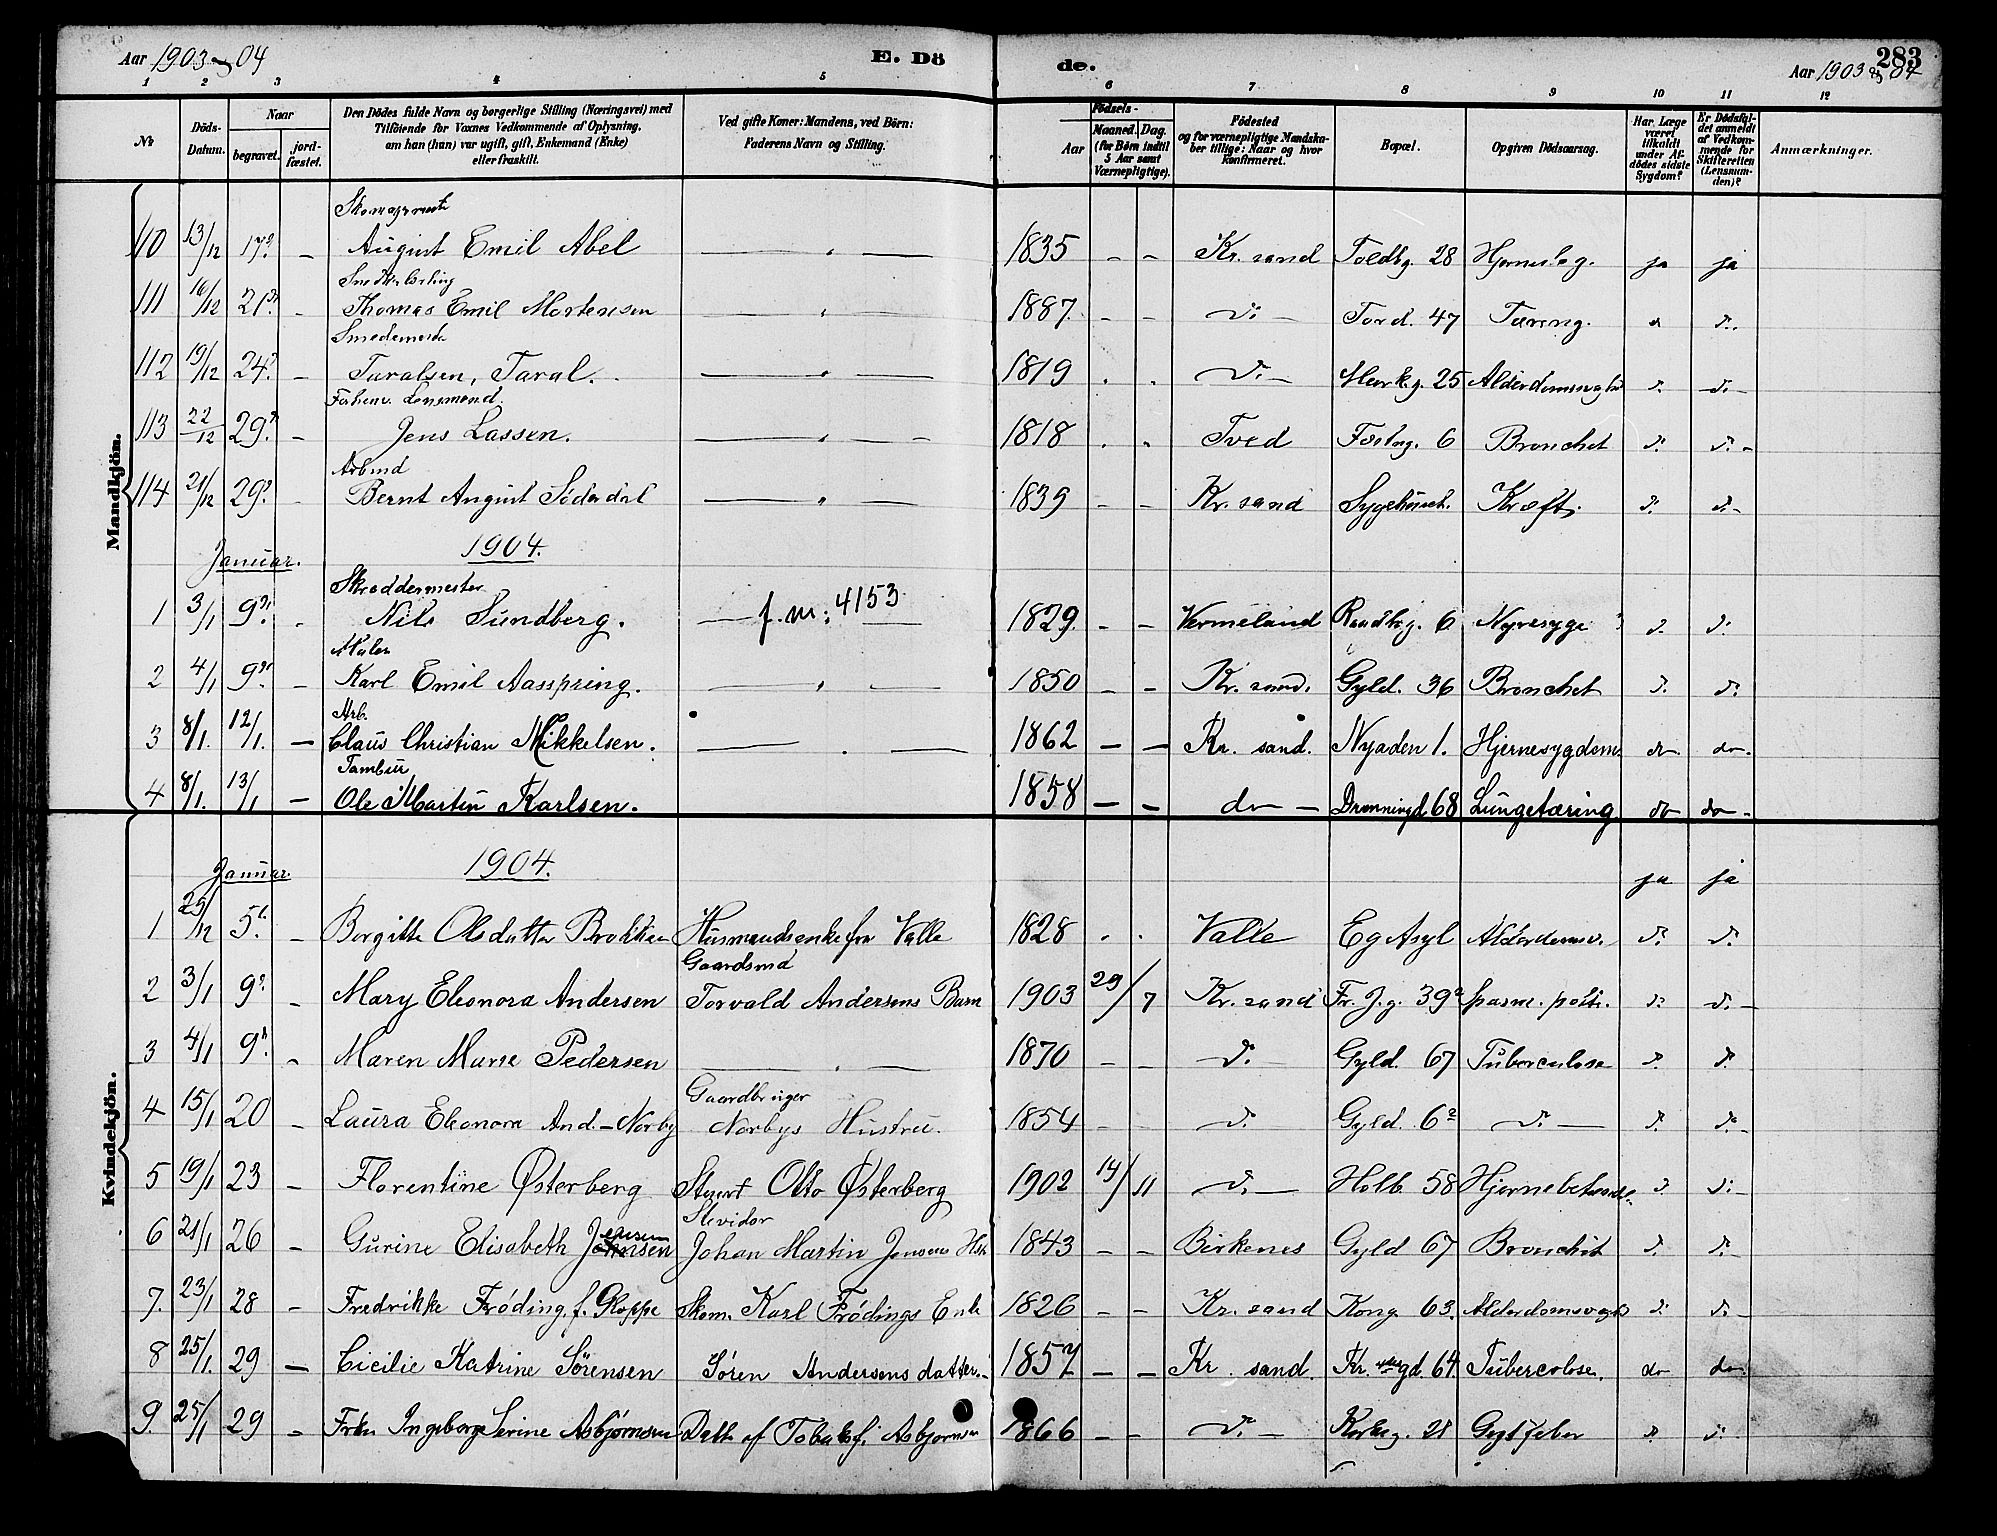 Aar 1903 & 04 E. Dö de. Aar 1903 & 04 283
1 2 3 4 5 6 7 8 9 10 11 12
No. Döds-Datum. Naar begravet. jord-fæstet. Den Dödes fulde Navn og borgerlige Stilling (Næringsvei) med Tilföiende for Voxnes Vedkommende af Oplysning, om han (hun) var ugift, gift, Enkemand (Enke) eller fraskilt. Ved gifte Koner: Mandens, ved Börn: Faderens Navn og Stilling. Födsels- Aar Maaned. Dag. (for Börn indtil 5 Aar samt Værnepligtige). Födested og for værnepligtige Mandskaber tillige: Naar og hvor Konfirmeret. Bopæl. Opgiven Dödsaarsag. Har Læge været tilkaldt under Afdödes sidste Sygdom? Er Dödsfaldet anmeldt af Vedkommende for Skifteretten (Lensmanden)? Anmærkninger.
Mandkjön.
110 13/12 17. – August Emil Abel — " — 1835 – – Kr. sand Toldbg. 28 ja ja
111 16/12 21. – Thomas Emil Mortensen — " — 1887. – – d. – Tord. 47 Tæring. d. d.
Smedemester
112 19/12 24. – Taralsen, Taral. — " — 1819 . . d. – Mark g. 25 d. d.
Forhenv. Lensmand.
113 22/12 29. – Jens Lassen. — " — 1818 . . Tved Fæstng. 6 Bronchit d. d. –
Arbmd
114 21/12 29. – Bernt August Söderdal — " — 1839 – – Kr. sand Sygehuset. Kræft. d. d. –
Januar. 1904.
Skreddermester
1 3/1 9. . Nils Sundberg. — f. m: 4153 — 1829 – – Vermeland Raadhg. 6 Nyresyge d. d.
Maler
2 4/1 9. – Karl Emil Aasspring. — " — 1850 – – Kr. sand. Gyld. 36 Bronchit d. d.
Arb.
3 8/1. 12/1. – Claus Christian Mikkelsen. — . — 1862 – – Kr. sand. Nyaden 1. Hjernesygdom do do.
Tambur
4 8/1. 13/1 – Ole Martin Karlsen. 1858 – – do – Dronningd 68 Lungetæring do do.
Kvindekjön.
Januar 1904. ja ja
1 25/12 5. – Borgitte Olsdatter Husmandsenke fra Valle 1828 . . Valle Eg Asyl Alderdomsv. d. d.
Gaardsmd
2 3/1 9. – Mary Eleonora Andersen Torvald Andersens Barn 1903 29/7 Kr. sand Fr. J. g. 39 d. d. –
3 4/1 9. – Maren Marie Pedersen — " — 1870 – – d. – Gyld. 67 Tuberculose d. d.
Gaardbruger
4 15/1 20 – Laura Eleonora And.–Norby Norbys Hustru. 1854 – – d. Gyld. 6 d. – d. d. –
5 19/1 23 – Florentine Østerberg Stuert Otto Østerberg 1902 14/11 d. – Holb. 58 d. d. –
Stevidor
6 21/1 26 – Gurine Elisabeth Jensen Johan Martin Jensens Hst 1843 – – Birkenes Gyld 67 Bronchit d. d. –
7. 23/1 28 – Fredrikke Fröding f. Gloppe Skom. Karl Frödings Enke 1826 – – Kr. sand Kong. 63. d. d. –
8 25/1. 29 – Cicilie Katrine Sörensen Sören Andersens datter. – 1857 – – Kr. sand. Kr. gd. 64. Tubercolose. do do.
9. 25/1 29 – Frkn Ingeborg Serine Asbjörnsen Datt. af Tobaksf. Asbjornsen 1866 – – d. – Kirkeg. 21 Gigtfeber d. d.